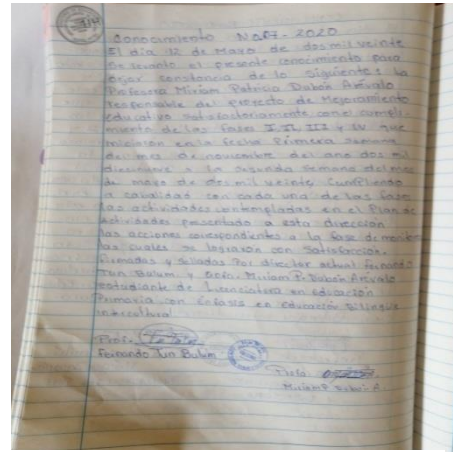 Conocimiento No 07-2020
El día 12 de Mayo de dos mil veinte
Se levantó el presente conocimiento para
dejar constancia de lo siguiente: La
Profesora Miriam Patricia Dubón Arévalo
responsable del proyecto de Mejoramiento
educativo satisfactoriamente con el cumpli-
miento de las fases I, II, III y IV que
inician en la fecha Primera semana
del mes de noviembre del año dos mil
diecinueve a la segunda semana del mes
de mayo de dos mil veinte, Cumpliendo
a cabalidad con cada una de las fases
las actividades contempladas en el Plan de
actividades presentado a esta dirección
las acciones correspondientes a la fase de
las cuales se lograron con Satisfacción.
Firmados y Sellados Por director actual Fernando
Tun Bulum y Profa. Miriam P. Dubón Arévalo
estudiante de Licenciatura en educación
Primaria con énfasis en educación Bilingüe
intercultural
Prof.
Fernando Tun Bulum
Profa.
Miriam P. Dubón A.